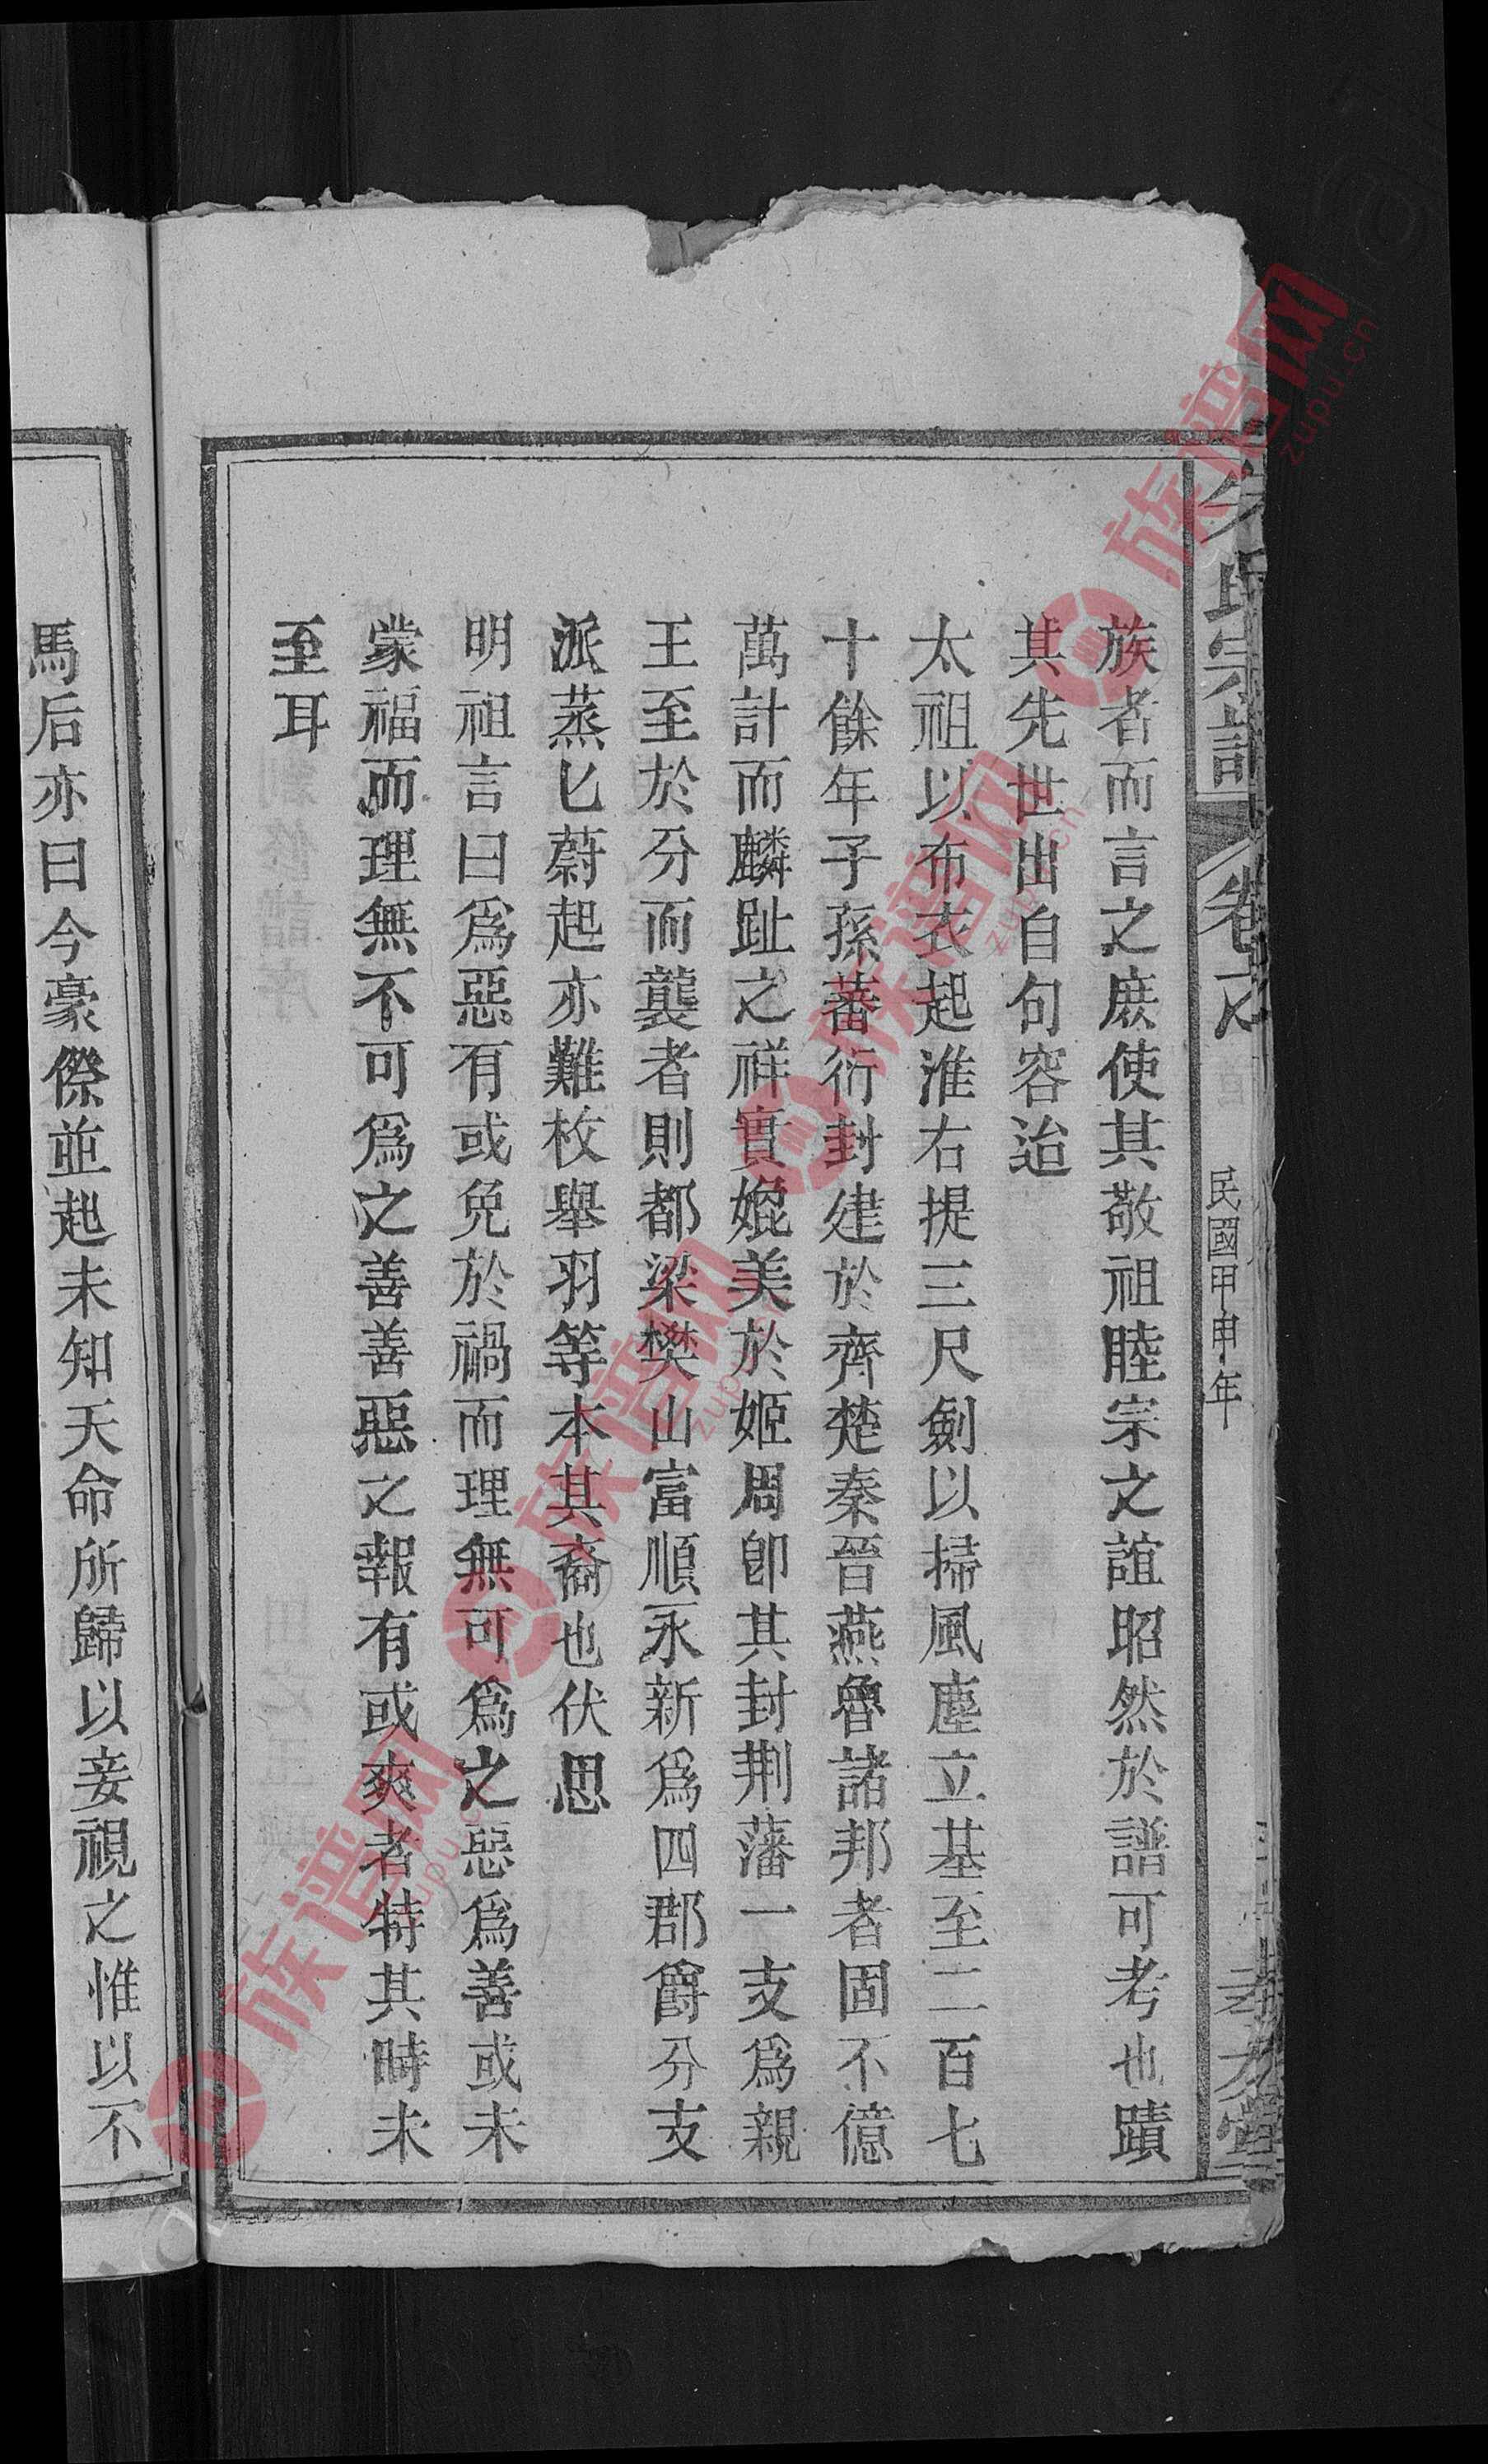 朱氏宗譜
民國甲申年
孝友堂
族者而言之庶使其敬祖睦宗之誼昭然於譜可考也蹟
其先世出自句容迨
太祖以布衣起淮右提三尺劍以掃風塵立基至二百七
十餘年子孫蕃衍封建於齊楚秦晉燕魯諸邦者固不億
萬計而麟趾之祥實媲美於姬周卽其封荆藩一支爲親
王至於分而襲者則都梁樊山富順永新爲四郡爵分支
派蒸匕蔚起亦難枚舉羽等本其裔也伏思
明祖言曰爲惡有或免於禍而理無可爲之惡爲善或未
蒙福而理無不可爲之善善惡之報有或爽者特其時未
至耳
馬后亦曰今豪傑並起未知天命所歸以妾視之惟以不
族谱网
zupu.cn
族谱网
zupu.cn
族谱网
zupu.cn
族谱网
zupu.cn